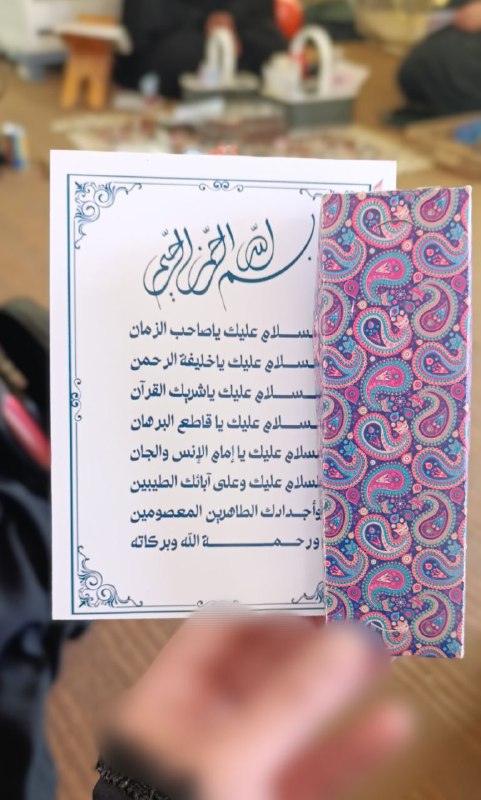 بسم الله الرحمن الرحيم
السلام عليك ياصاحب الزمان
السلام عليك ياخليفة الرحمن
السلام عليك ياشريك القرآن
السلام عليك يا قاطع البرهان
السلام عليك يا إمام الإنس والجان
السلام عليك وعلى آبائك الطيبين
وأجدادك الطاهرين المعصومين
ورحمة الله وبركاته